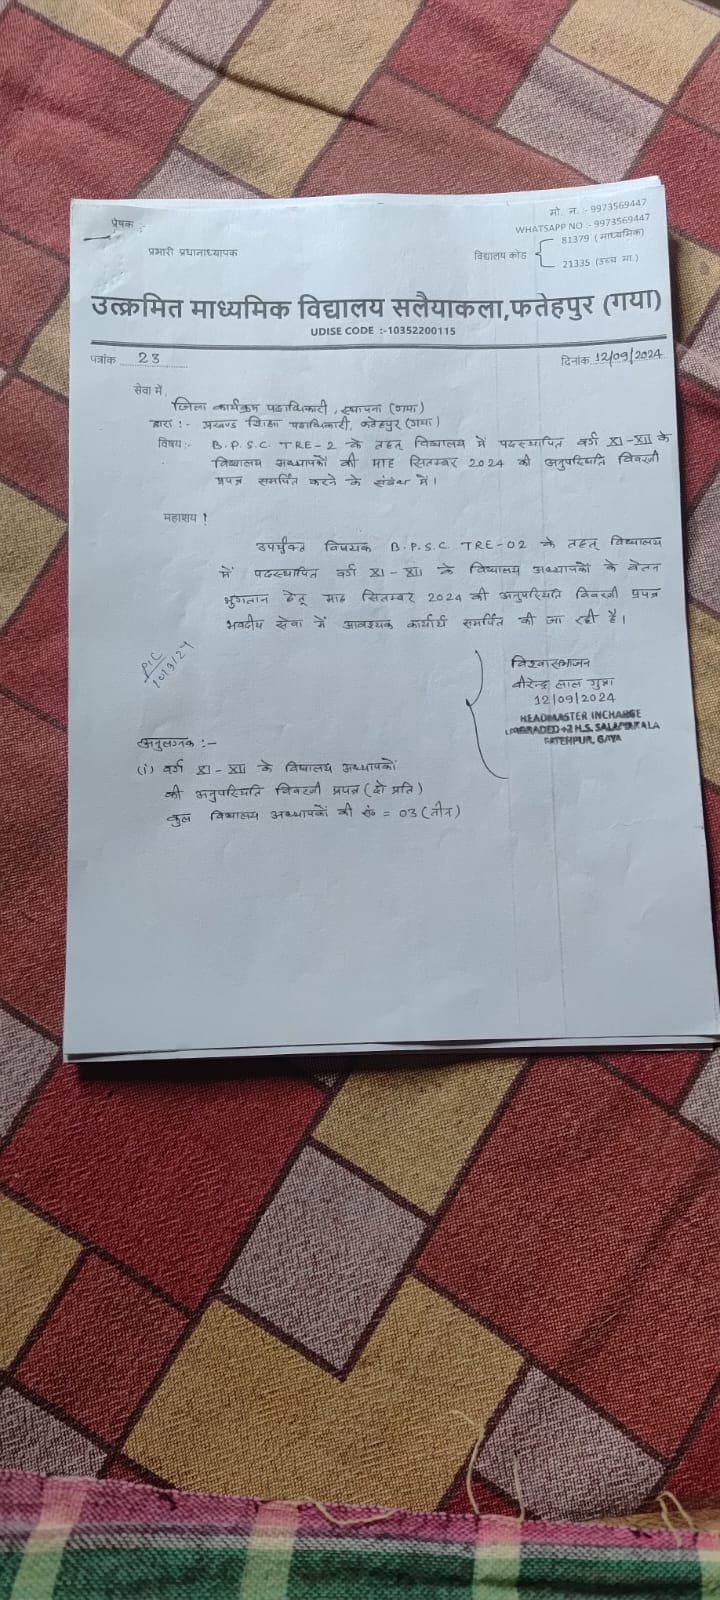 प्रेषक :
मो. न. :- 9973569447
WHATSAPP NO :- 9973569447
प्रभारी प्रधानाध्यापक
विद्यालय कोड
81379 (माध्यमिक)
21335 (उच्च मा.)
उत्क्रमित माध्यमिक विद्यालय सलैयाकला,फतेहपुर (गया)
UDISE CODE :-10352200115
पत्रांक 23
दिनांक 12/09/2024
सेवा में,
जिला कार्यक्रम पदाधिकारी, स्थापना (गया)
द्वारा :- प्रखण्ड शिक्षा पदाधिकारी, फतेहपुर (गया)
विषय:- B.P.S.C. TRE-2 के तहत् विद्यालय में पदस्थापित वर्ग XI-XII के
विद्यालय अध्यापकों की माह सितम्बर 2024 की अनुपस्थिति विवरणी
प्रपत्र समर्पित करने के संबंध में।
महाशय !
उपर्युक्त विषयक B.P.S.C. TRE-02 के तहत् विद्यालय
में पदस्थापित वर्ग XI-XII के विद्यालय अध्यापकों के वेतन
भुगतान हेतू माह सितम्बर 2024 की अनुपस्थिति विवरणी प्रपत्र
भवदीय सेवा में आवश्यक कार्यार्थ समर्पित की जा रही है।
विश्वासभाजन
वीरेन्द्र लाल गुप्ता
12/09/2024
HEADMASTER INCHARGE
UPGRADED +2 H.S. SALAIYAKALA
FATEHPUR, GAYA
अनुलग्नक :-
(i) वर्ग XI-XII के विद्यालय अध्यापकों
की अनुपस्थिति विवरणी प्रपत्र (दो प्रति)
कुल विद्यालय अध्यापकों की सं० = 03 (तीन)